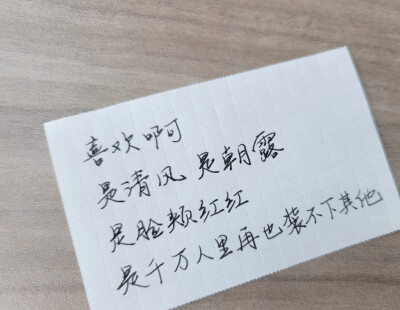 喜欢啊
是清风 是朝露
是脸颊红红
是千万人里再也装不下其他